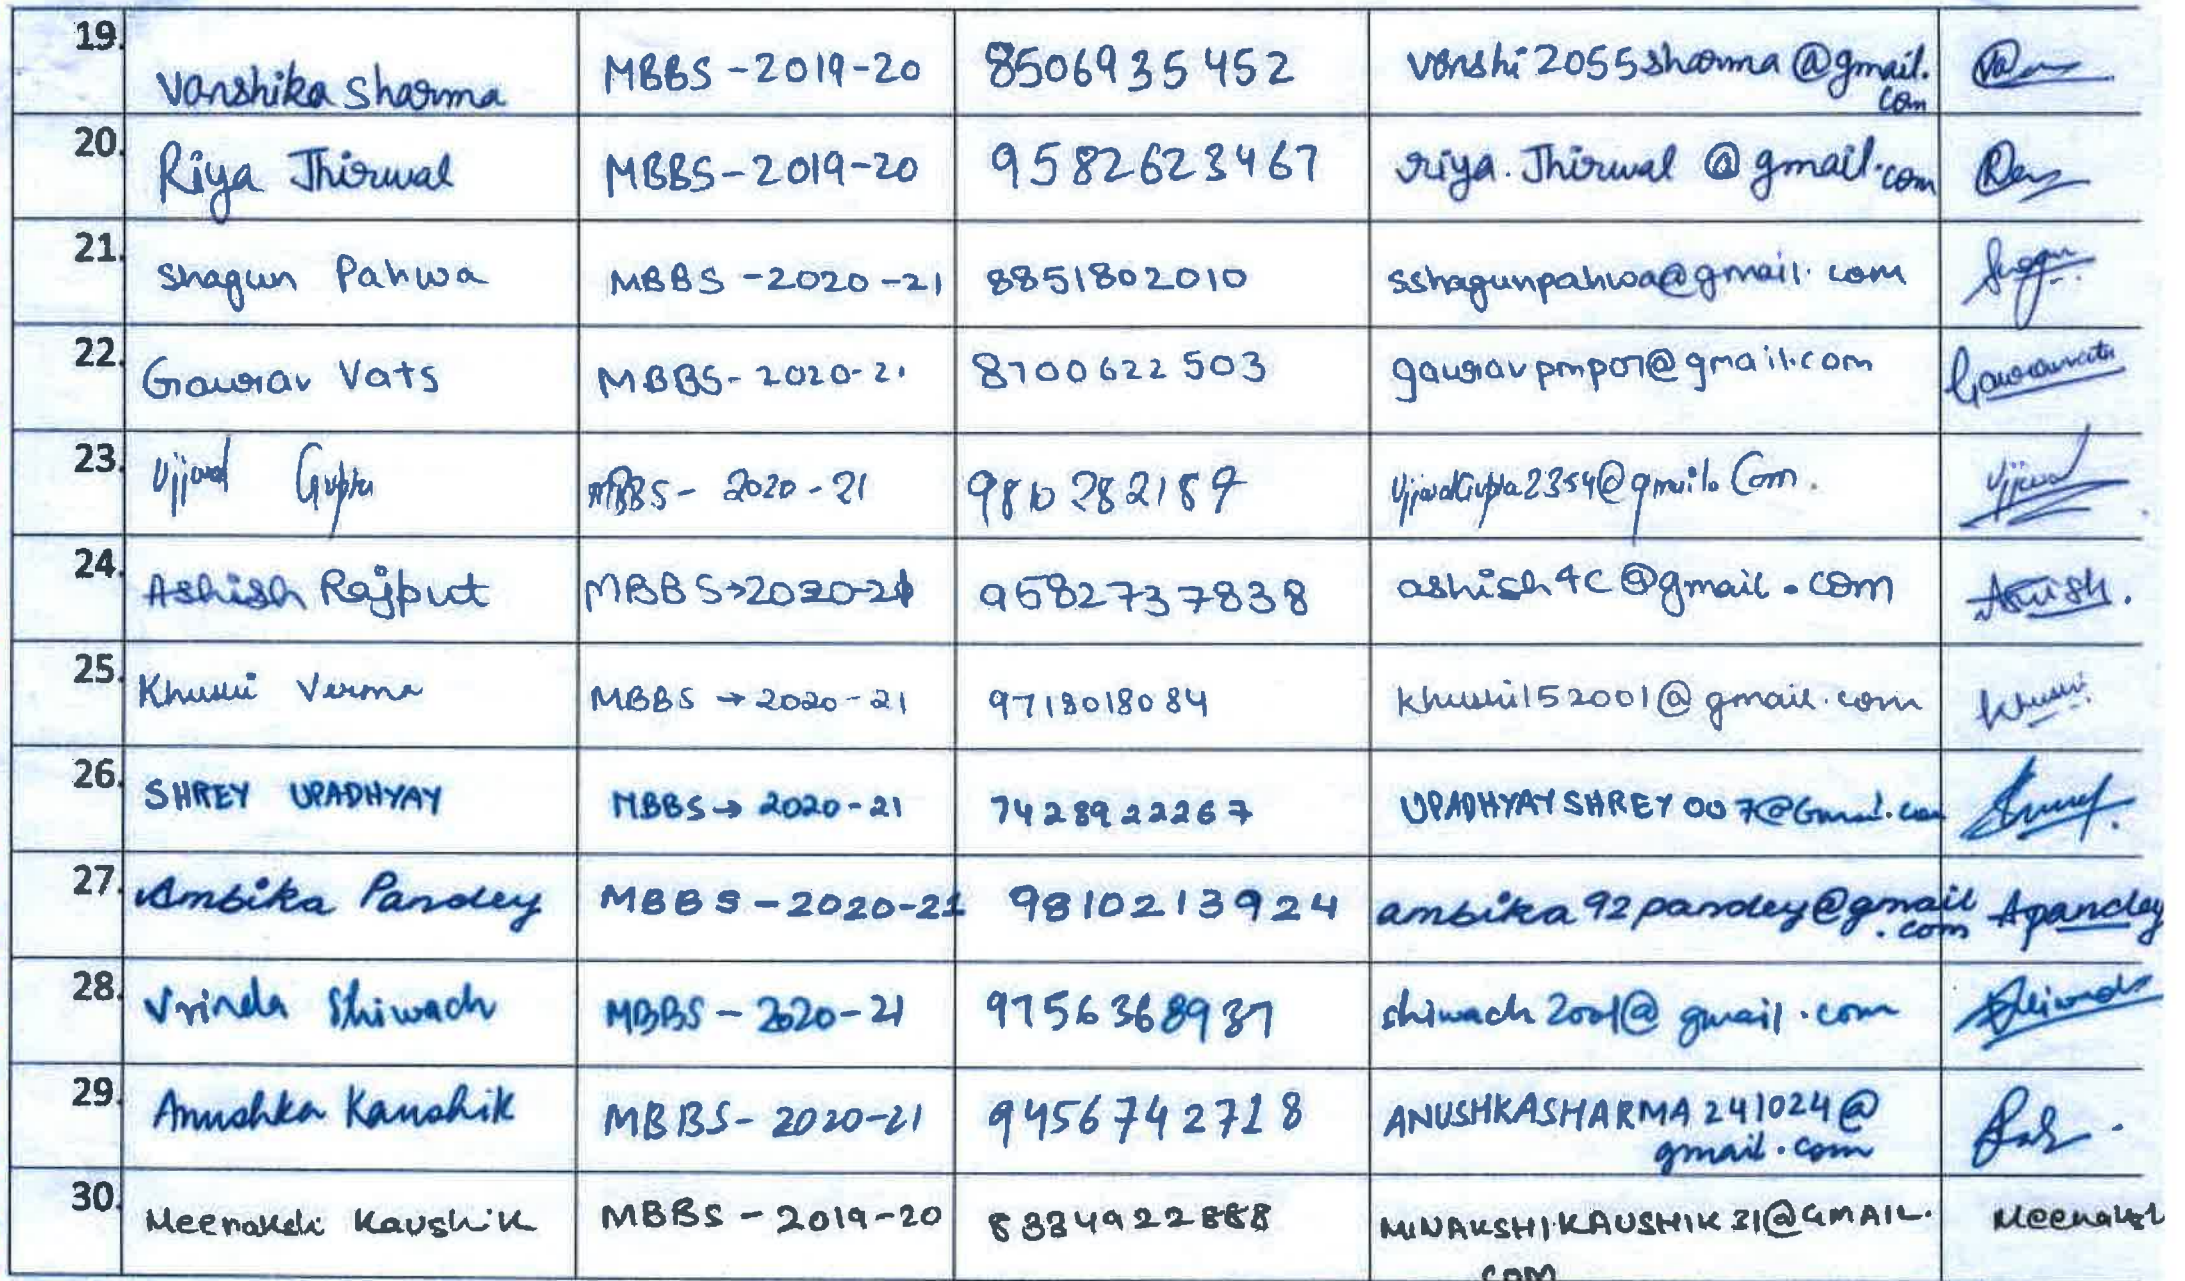 19. Vanshika Sharma MBBS - 2019-20 8506935452 vanshi2055sharma@gmail.
com
20. Riya Thirwal MBBS - 2019-20 9582623467 riya.Thirwal@gmail.com
21. Shagun Pahwa MBBS - 2020-21 8851802010 sshagunpahwa@gmail.com
22. Gaurav Vats MBBS - 2020-21 8700622503 gauravpmp07@gmail.com Gauravvats
23. Ujjwal Gupta MBBS - 2020-21 9810282189 UjjwalGupta2354@gmail.Com. Ujjwal
24. Ashish Rajput MBBS→2020-21 9582737838 ashish4c@gmail.com Ashish.
25. Khushi Verma MBBS → 2020-21 9718018084 khushi152001@gmail.com Khushi
26. SHREY UPADHYAY MBBS → 2020-21 7428922267 UPADHYAYSHREY007@Gmail.com
27. Ambika Pandey MBBS - 2020-21 9810213924 ambika92pandey@gmail Apandey
.com
28. Vrinda Shiwach MBBS - 2020-21 9756368937 shiwach2001@gmail.com
29. Anushka Kaushik MBBS - 2020-21 9456742718 ANUSHKASHARMA241024@
gmail.com
30. Meenakshi Kaushik MBBS - 2019-20 MINAKSHIKAUSHIK31@GMAIL. Meenakshi
COM